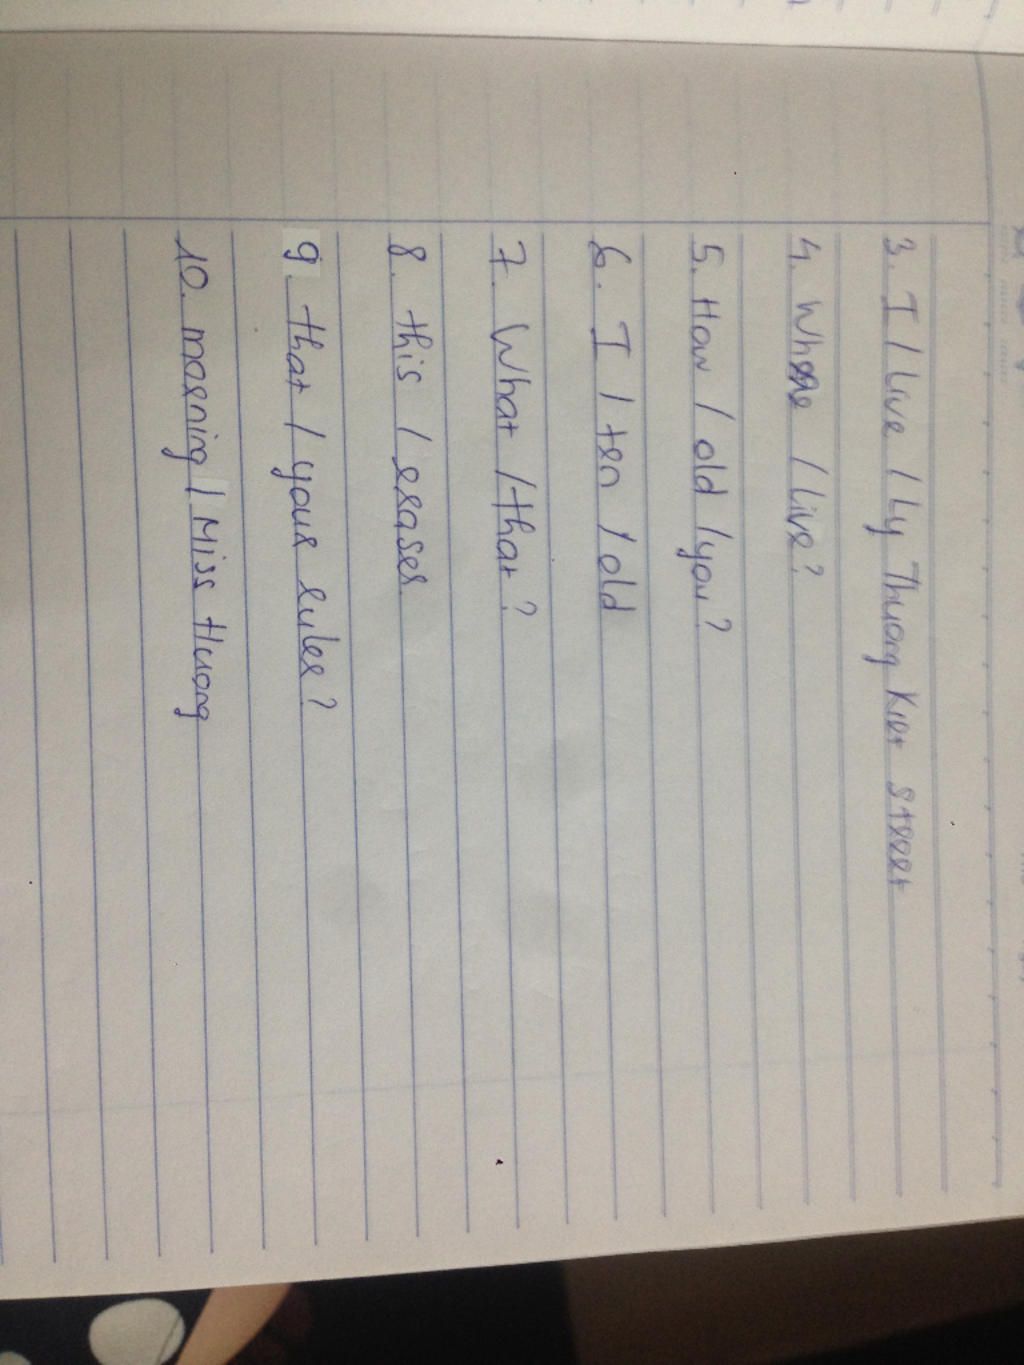 3. I / Live / Ly Thuong Kiet street
4. Where / Live?
5. How / old / you?
6. I / ten / old
7. What / that?
8. this / eraser
9. that / your ruler?
10. morning / Miss Huong